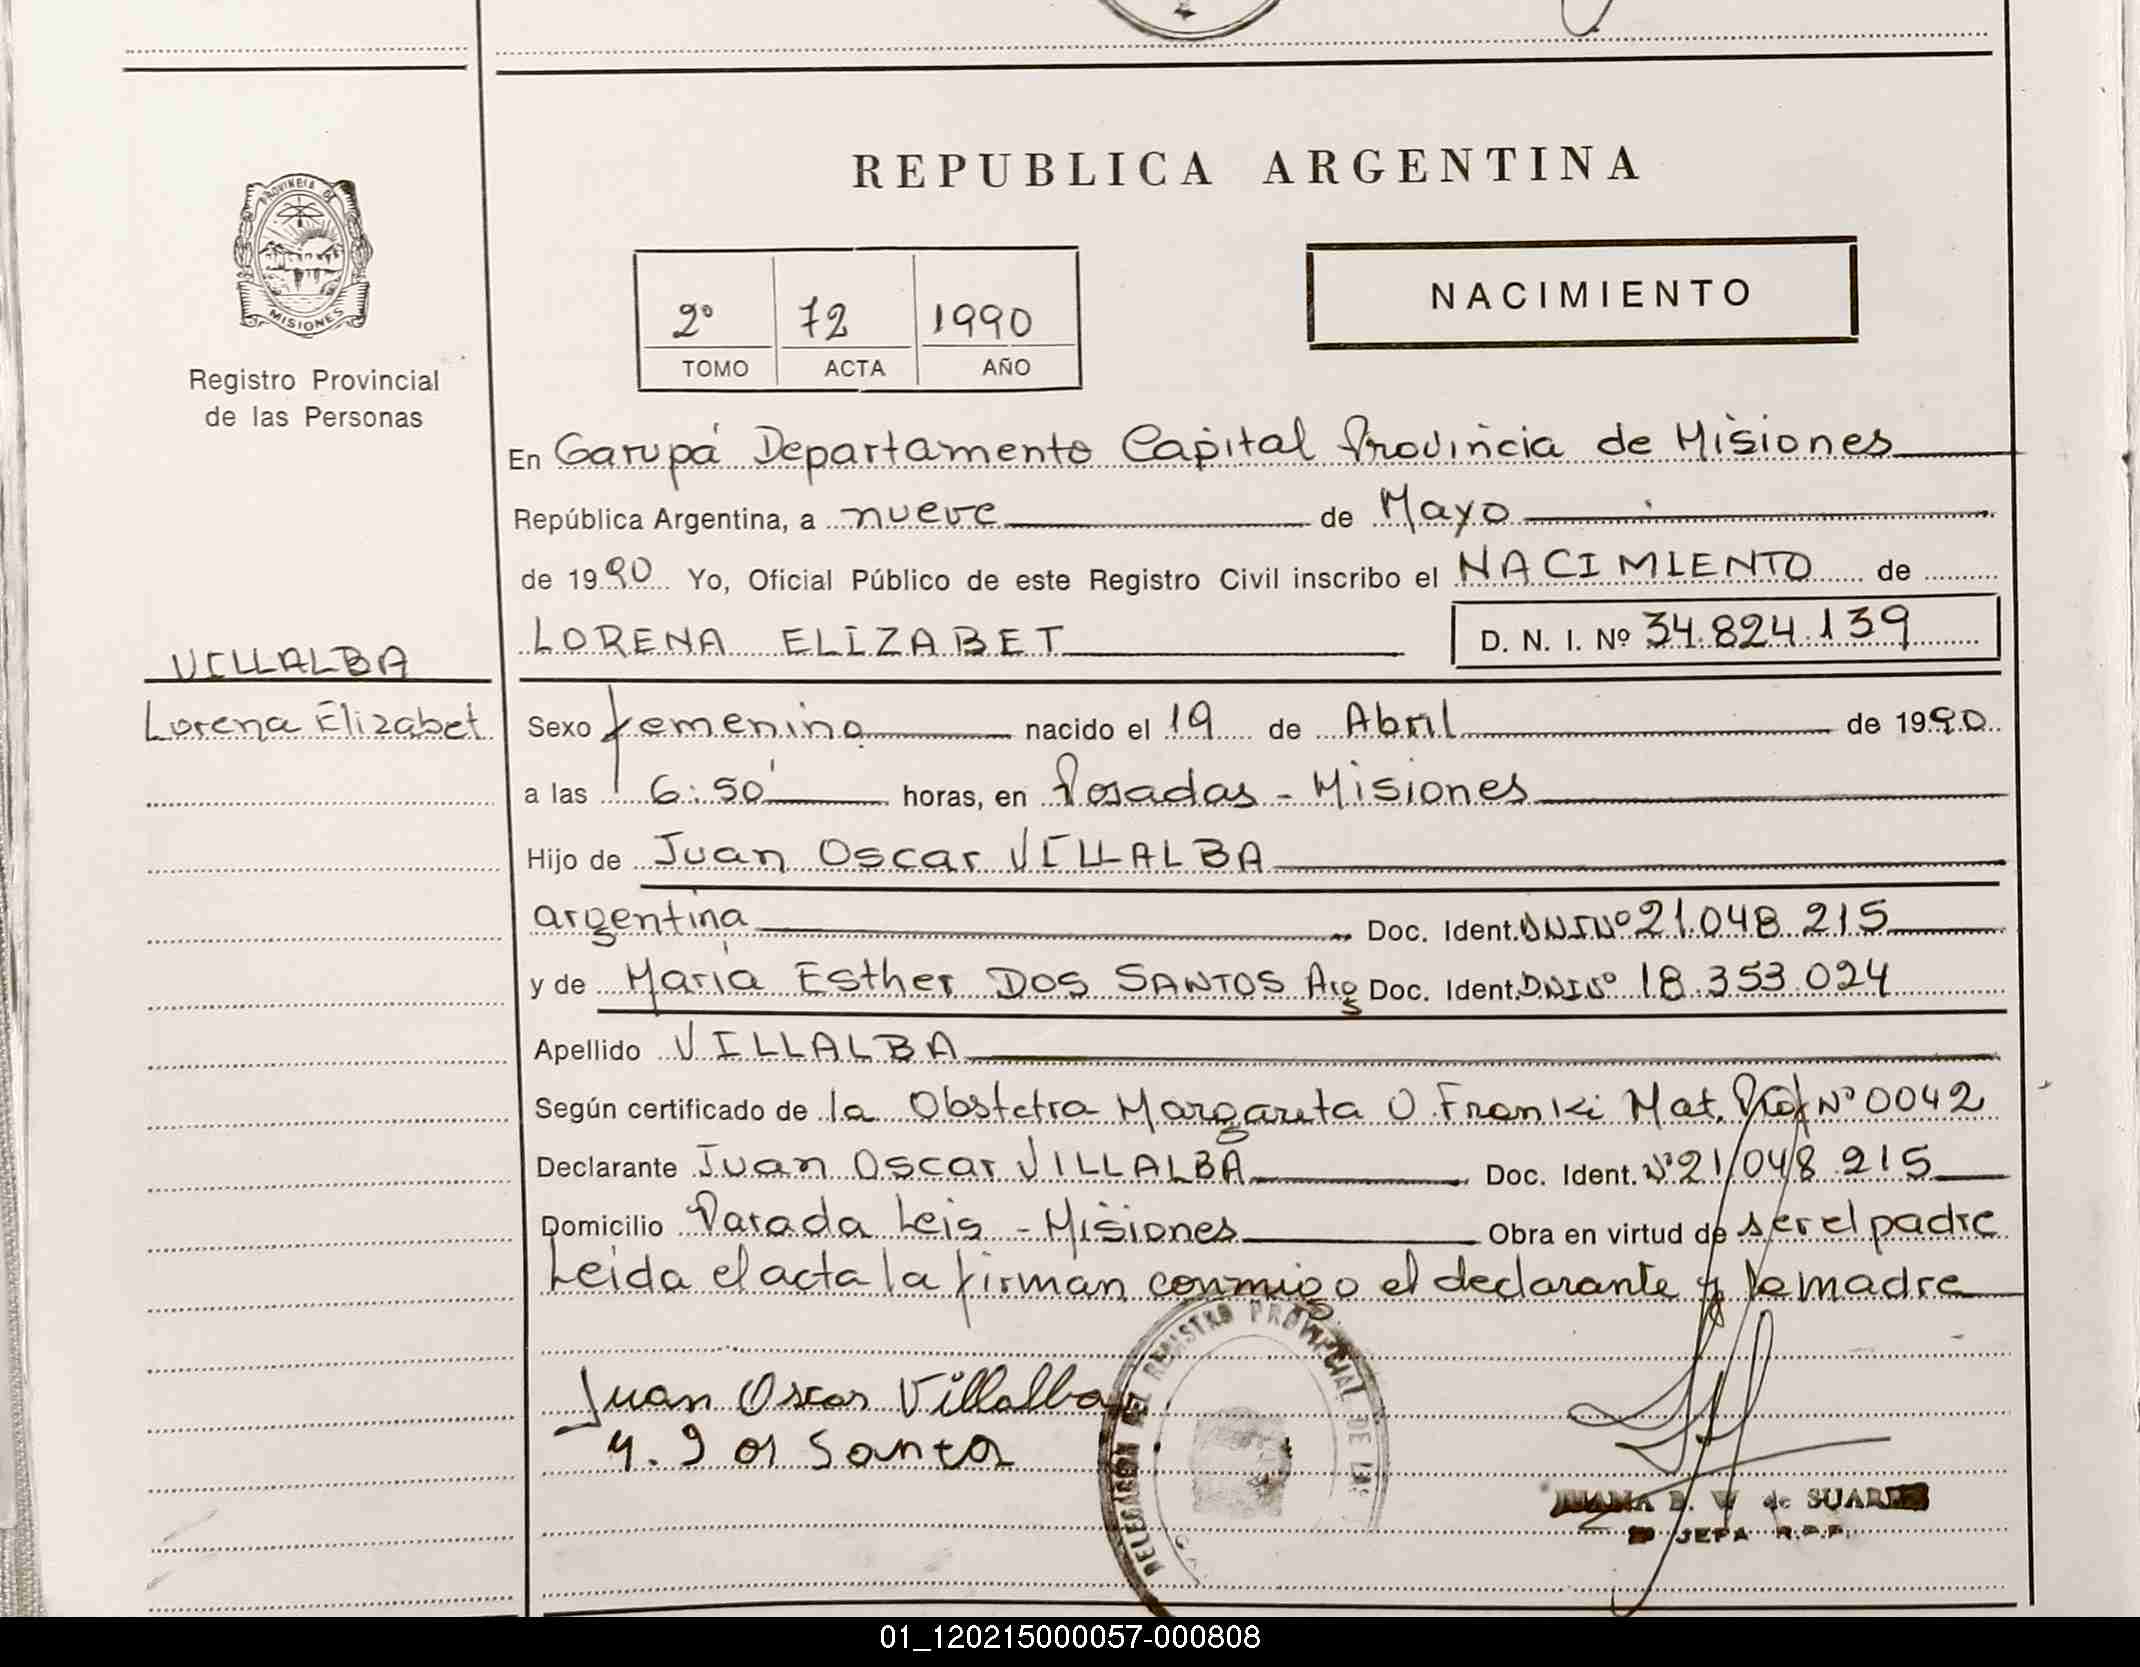 REPUBLICA ARGENTINA
PROVINCIA DE
MISIONES
Registro Provincial
de las Personas
2º 72 1990
TOMO ACTA AÑO
NACIMIENTO
En Garupá Departamento Capital Provincia de Misiones
República Argentina, a nueve de Mayo
de 1990 Yo, Oficial Público de este Registro Civil inscribo el NACIMIENTO de
LORENA ELIZABET D. N. I. Nº 34.824.139
VILLALBA
Lorena Elizabet
Sexo femenino nacido el 19 de Abril de 1990
a las 6:50' horas, en Posadas - Misiones
Hijo de Juan Oscar VILLALBA
argentina Doc. Ident. DNI Nº 21.048.215
y de María Esther DOS SANTOS Arg Doc. Ident. DNI Nº 18.353.024
Apellido VILLALBA
Según certificado de la Obstetra Margareta O. Franki Mat. Prof Nº 0042
Declarante Juan Oscar VILLALBA Doc. Ident. Nº 21.048.215
Domicilio Parada Leis - Misiones Obra en virtud de ser el padre
Leida el acta la firman conmigo el declarante y la madre
Juan Oscar Villalba
DELEGACION DEL REGISTRO PROVINCIAL DE LAS
JUANA B. W de SUAREZ
JEFA R.P.P.
01_120215000057-000808